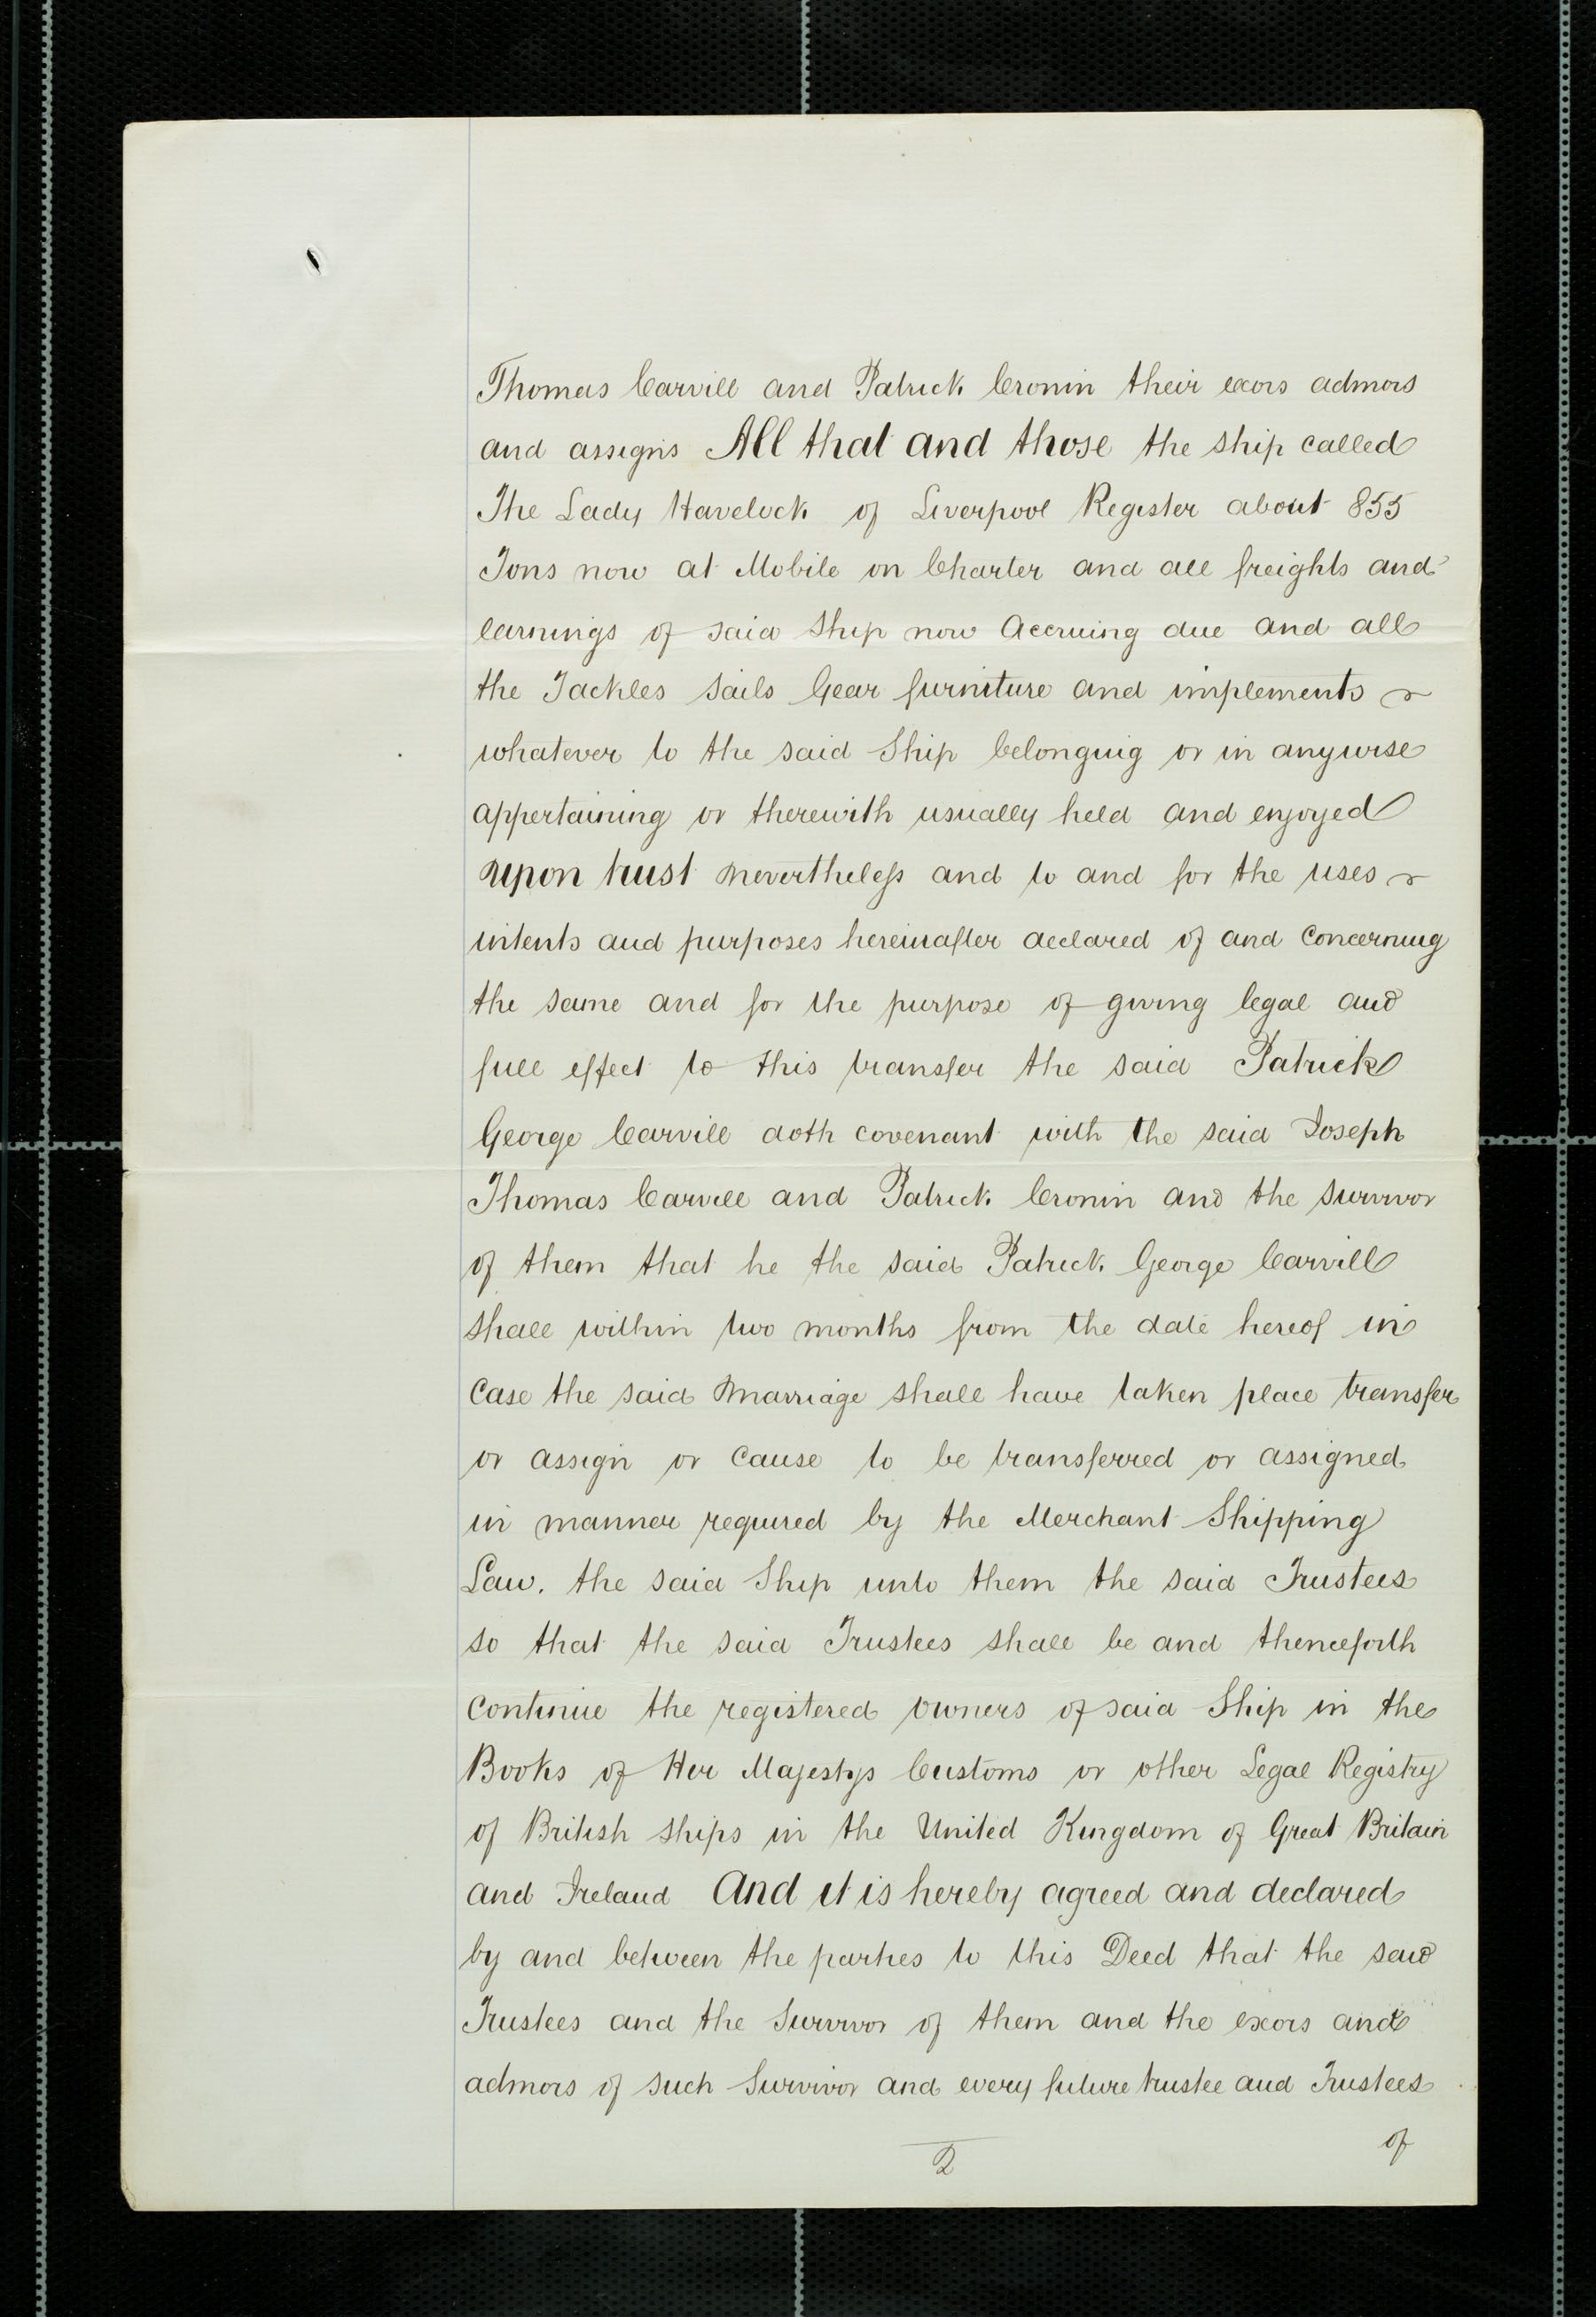 Thomas Carvill and Patrick Cronin their exors admors
and assigns All that and those the ship called
The Lady Havelock of Liverpool Register about 855
Tons now at Mobile on Charter and all freights and
earnings of said Ship now Accruing due and all
the Tackles Sails Gear furniture and implements
whatever to the said Ship belonging or in anywise
appertaining or therewith usually held and enjoyed
upon trust nevertheless and to and for the uses
intents and purposes hereinafter declared of and concerning
the same and for the purpose of giving legal and
full effect to this transfer the said Patrick
George Carvill doth covenant with the said Joseph
Thomas Carvill and Patrick Cronin and the survivor
of them that he the said Patrick George Carvill
shall within two months from the date hereof in
case the said Marriage shall have taken place transfer
or assign or cause to be transferred or assigned
in manner required by the Merchant Shipping
Law. the said Ship unto them the said Trustees
so that the said Trustees shall be and thenceforth
continue the registered owners of said Ship in the
Books of Her Majestys Customs or other Legal Registry
of British ships in the United Kingdom of Great Britain
and Ireland And it is hereby agreed and declared
by and between the parties to this Deed that the said
Trustees and the Survivor of them and the exors and
admors of such Survivor and every future trustee and Trustees
of
2